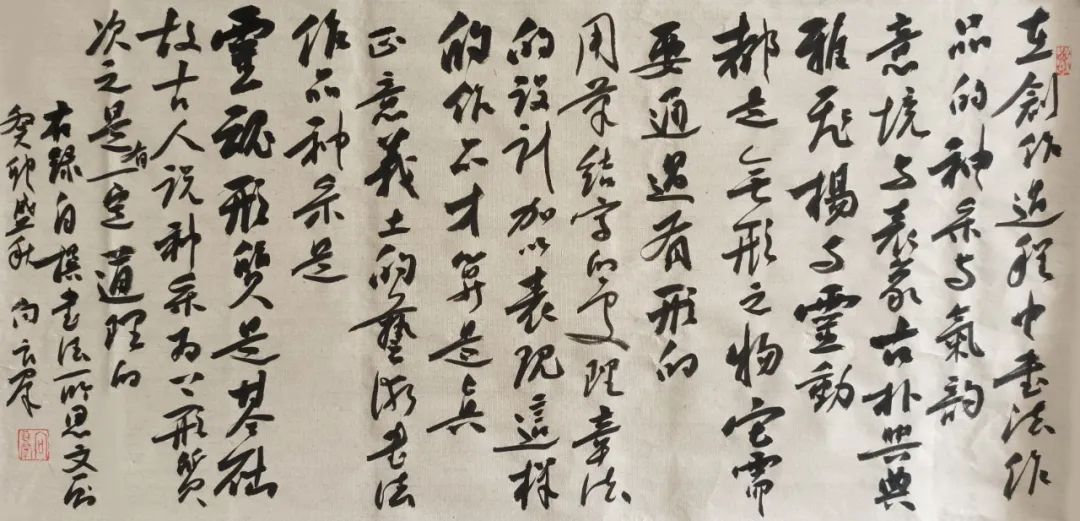 在創作過程中書法作
品的神采与氣韵
意境与表象古朴與典
雅飛揚与靈動
都是無形之物它需
要通過有形的
用筆結字的處理章法
的設计加以表現這樣
的作品才算是真
正意義上的藝術書法
作品神采是
靈魂形質是基础
故古人説神采為上形質
次之是有一定道理的
右録自撰書法所思文句
癸卯盛秋 向云羣